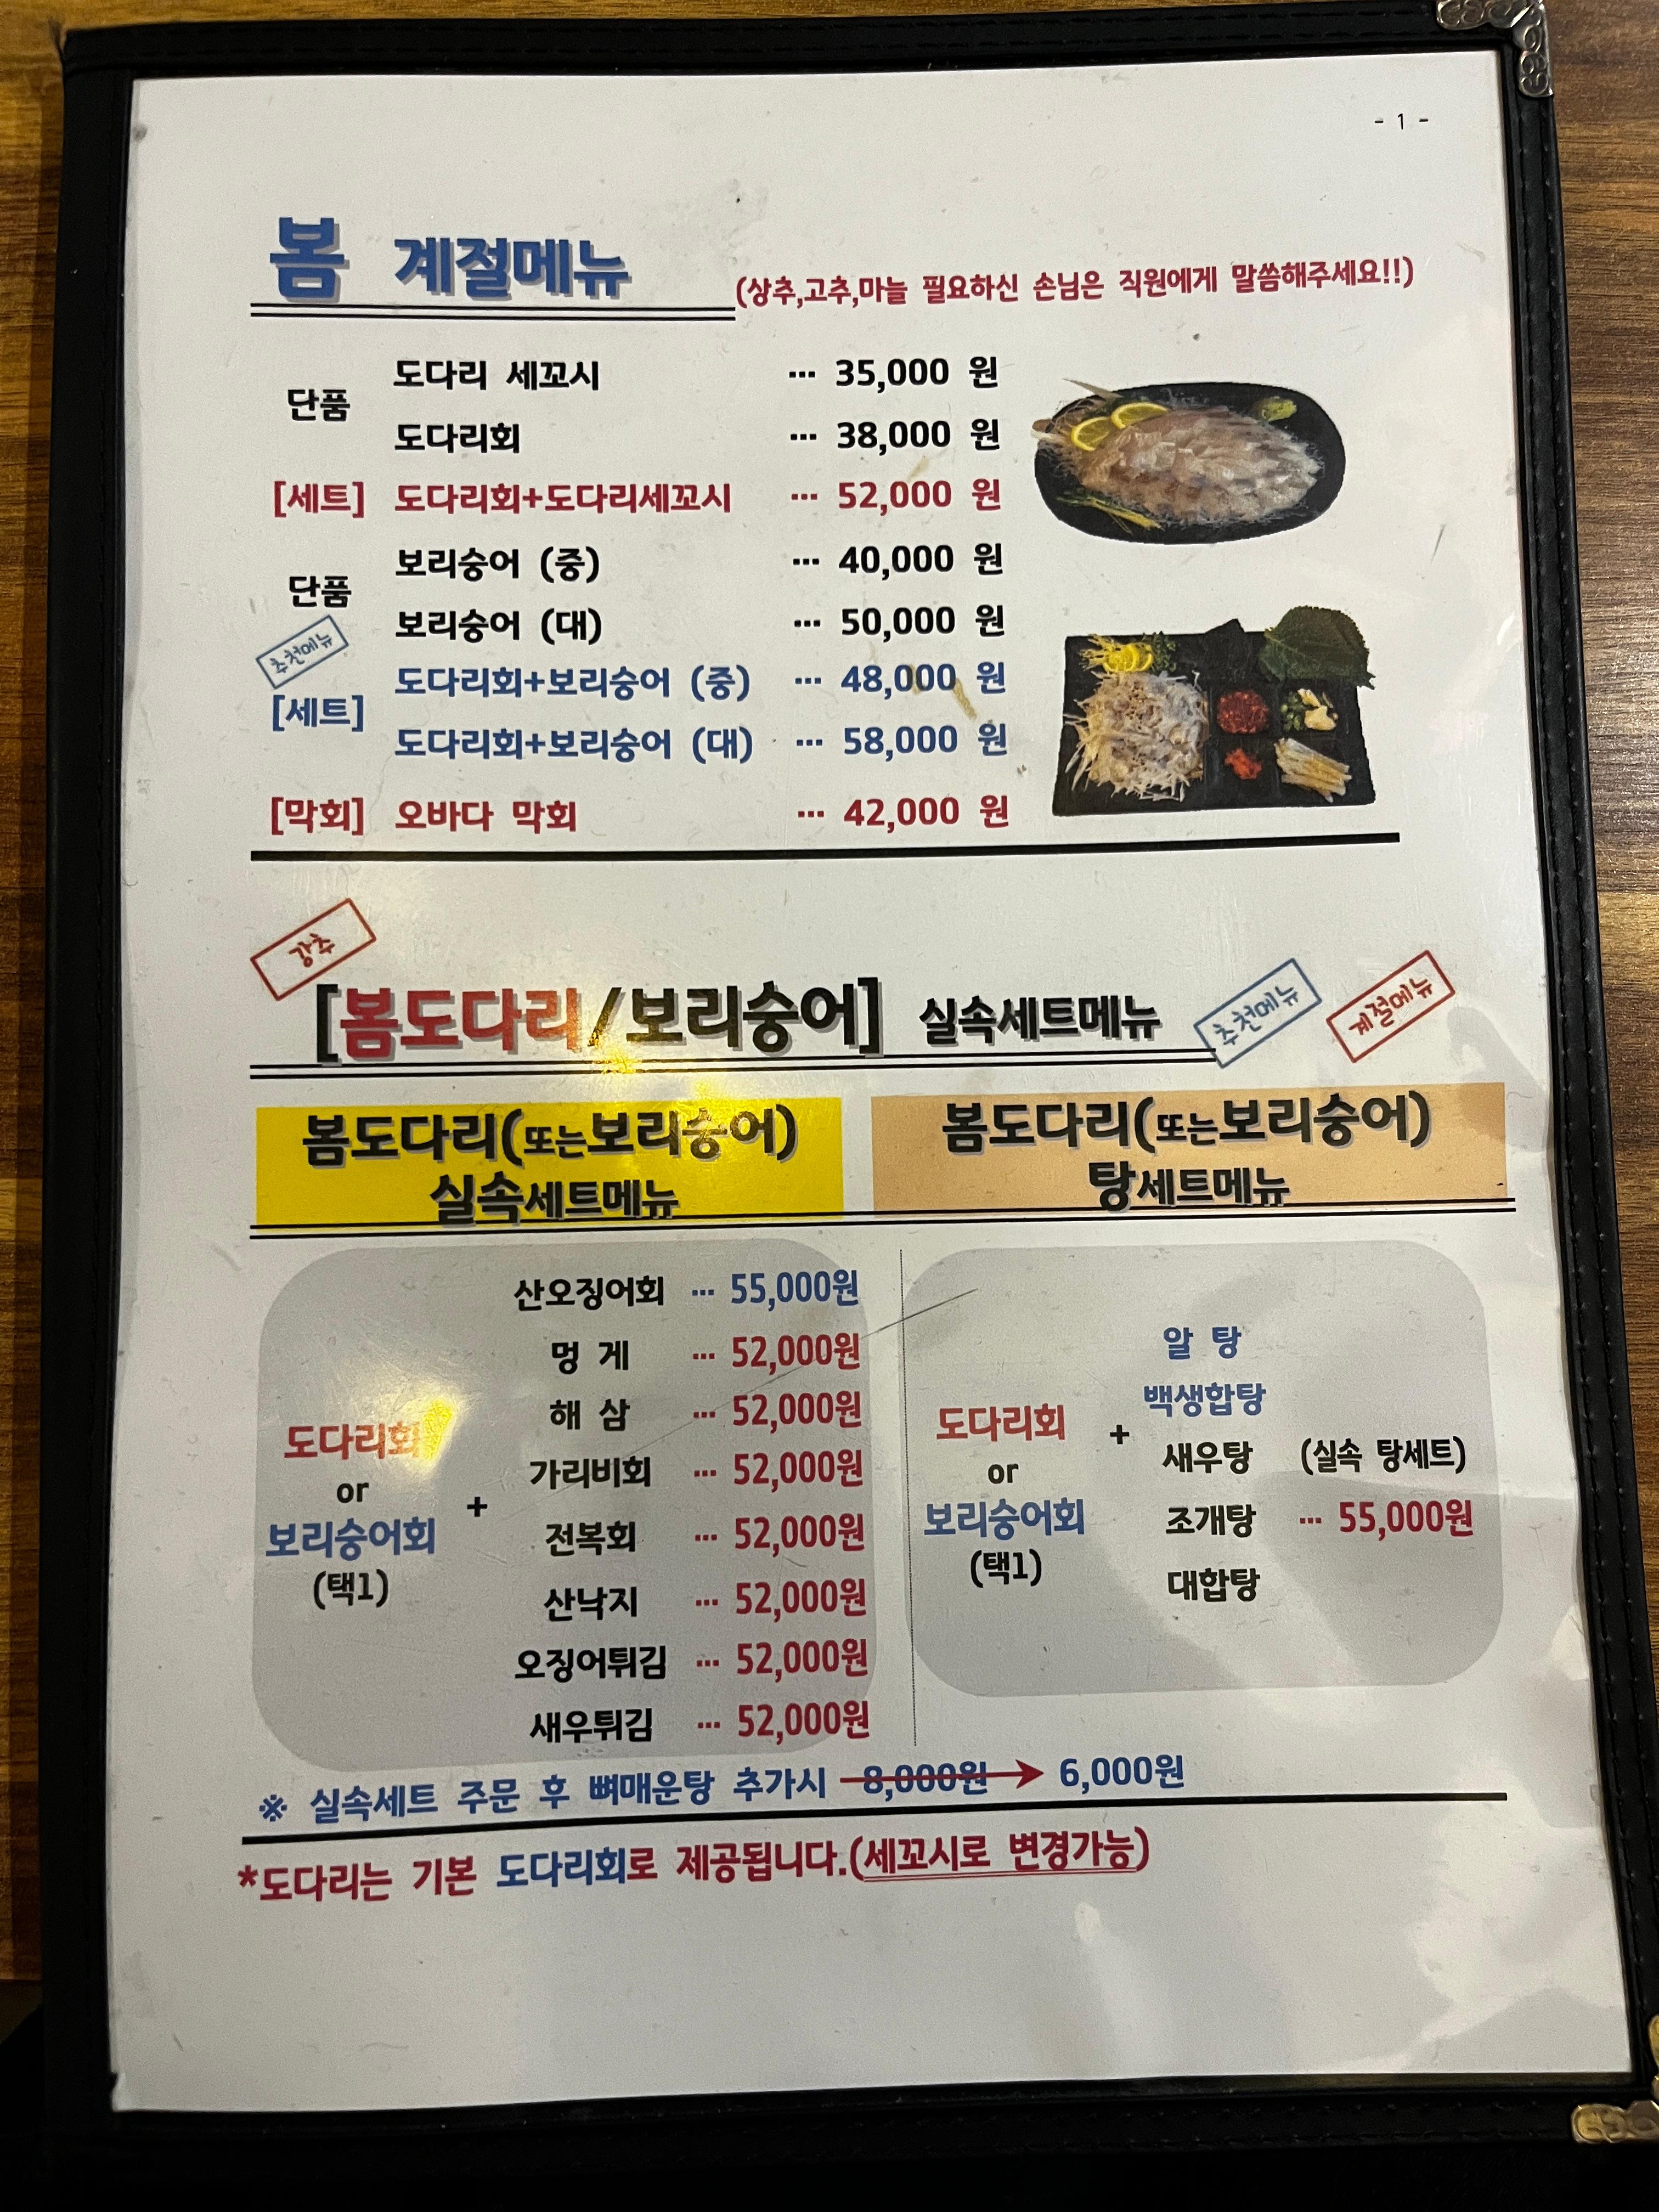 - 1 -
봄 계절메뉴 (상추,고추,마늘 필요하신 손님은 직원에게 말씀해주세요!!)
단품
도다리 세꼬시 ··· 35,000 원
도다리회 ··· 38,000 원
[세트] 도다리회+도다리세꼬시 ··· 52,000 원
단품
보리숭어 (중) ··· 40,000 원
보리숭어 (대) ··· 50,000 원
추천메뉴
[세트]
도다리회+보리숭어 (중) ··· 48,000 원
도다리회+보리숭어 (대) ··· 58,000 원
[막회] 오바다 막회 ··· 42,000 원
강추
[봄도다리/보리숭어] 실속세트메뉴
추천메뉴
계절메뉴
봄도다리(또는보리숭어)
실속세트메뉴
도다리회
or
보리숭어회
(택1)
+
산오징어회 ··· 55,000원
멍 게 ··· 52,000원
해 삼 ··· 52,000원
가리비회 ··· 52,000원
전복회 ··· 52,000원
산낙지 ··· 52,000원
오징어튀김 ··· 52,000원
새우튀김 ··· 52,000원
봄도다리(또는보리숭어)
탕세트메뉴
도다리회
or
보리숭어회
(택1)
+
알 탕
백생합탕
새우탕
조개탕
대합탕
(실속 탕세트)
··· 55,000원
※ 실속세트 주문 후 뼈매운탕 추가시 8,000원 → 6,000원
*도다리는 기본 도다리회로 제공됩니다.(세꼬시로 변경가능)